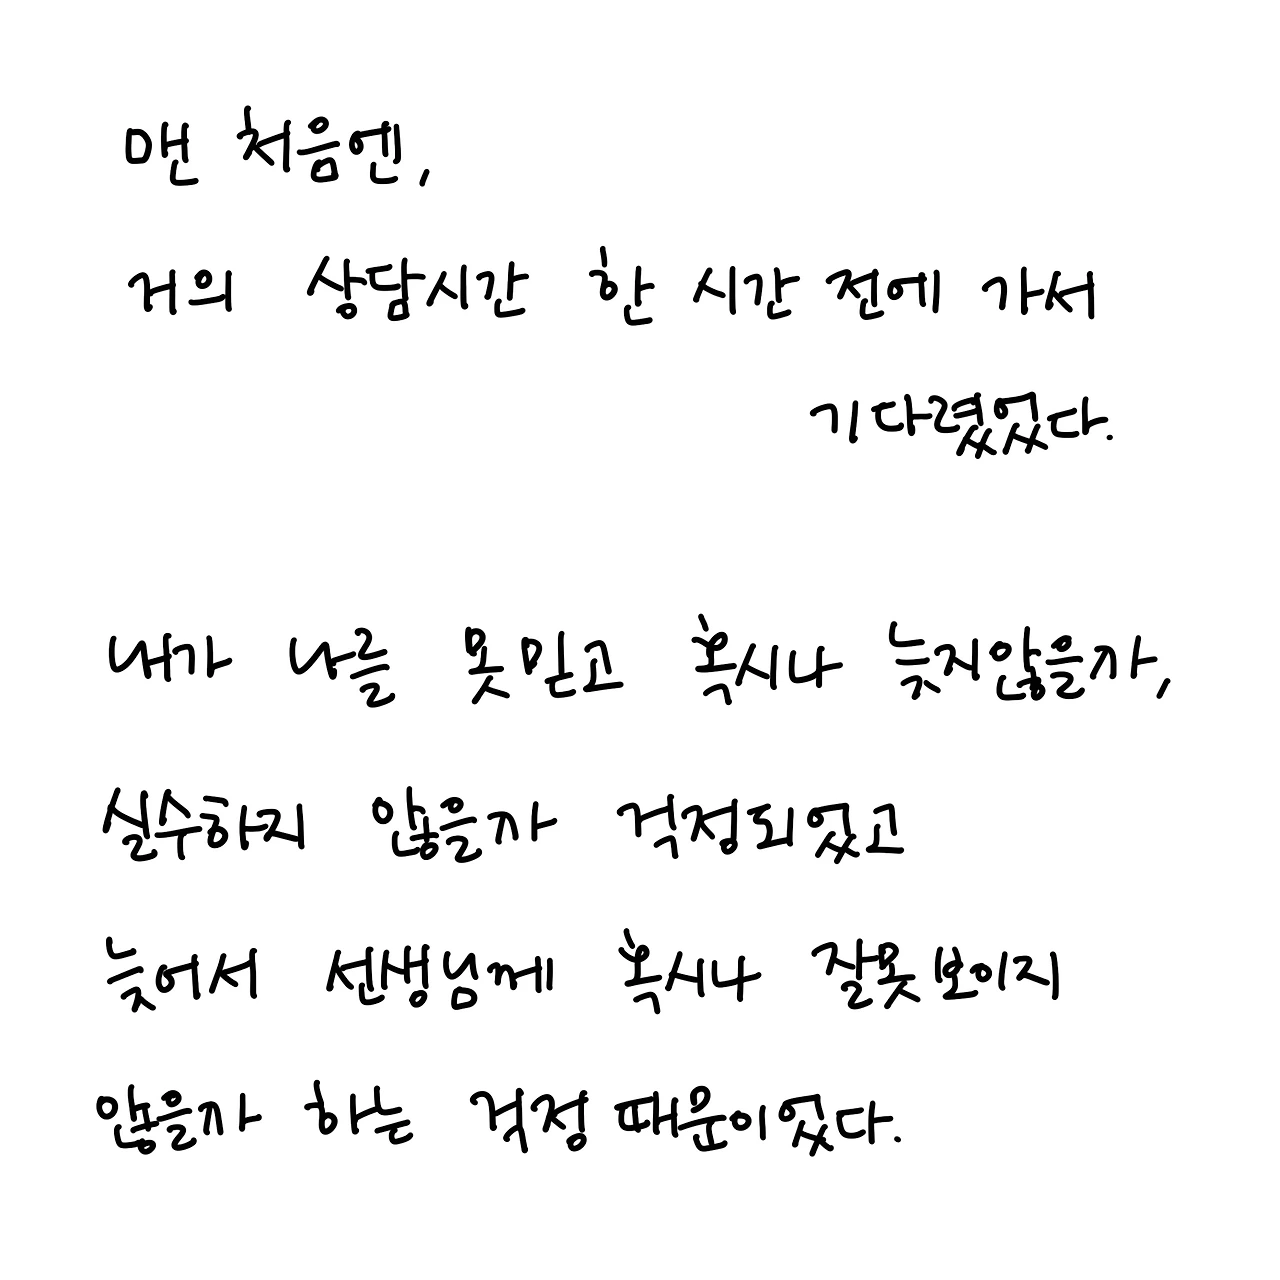 맨 처음엔,
거의 상담시간 한 시간 전에 가서
기다렸었다.
내가 나를 못 믿고 혹시나 늦지않을까,
실수하지 않을까 걱정되었고
늦어서 선생님께 혹시나 잘못보이지
않을까 하는 걱정 때문이었다.